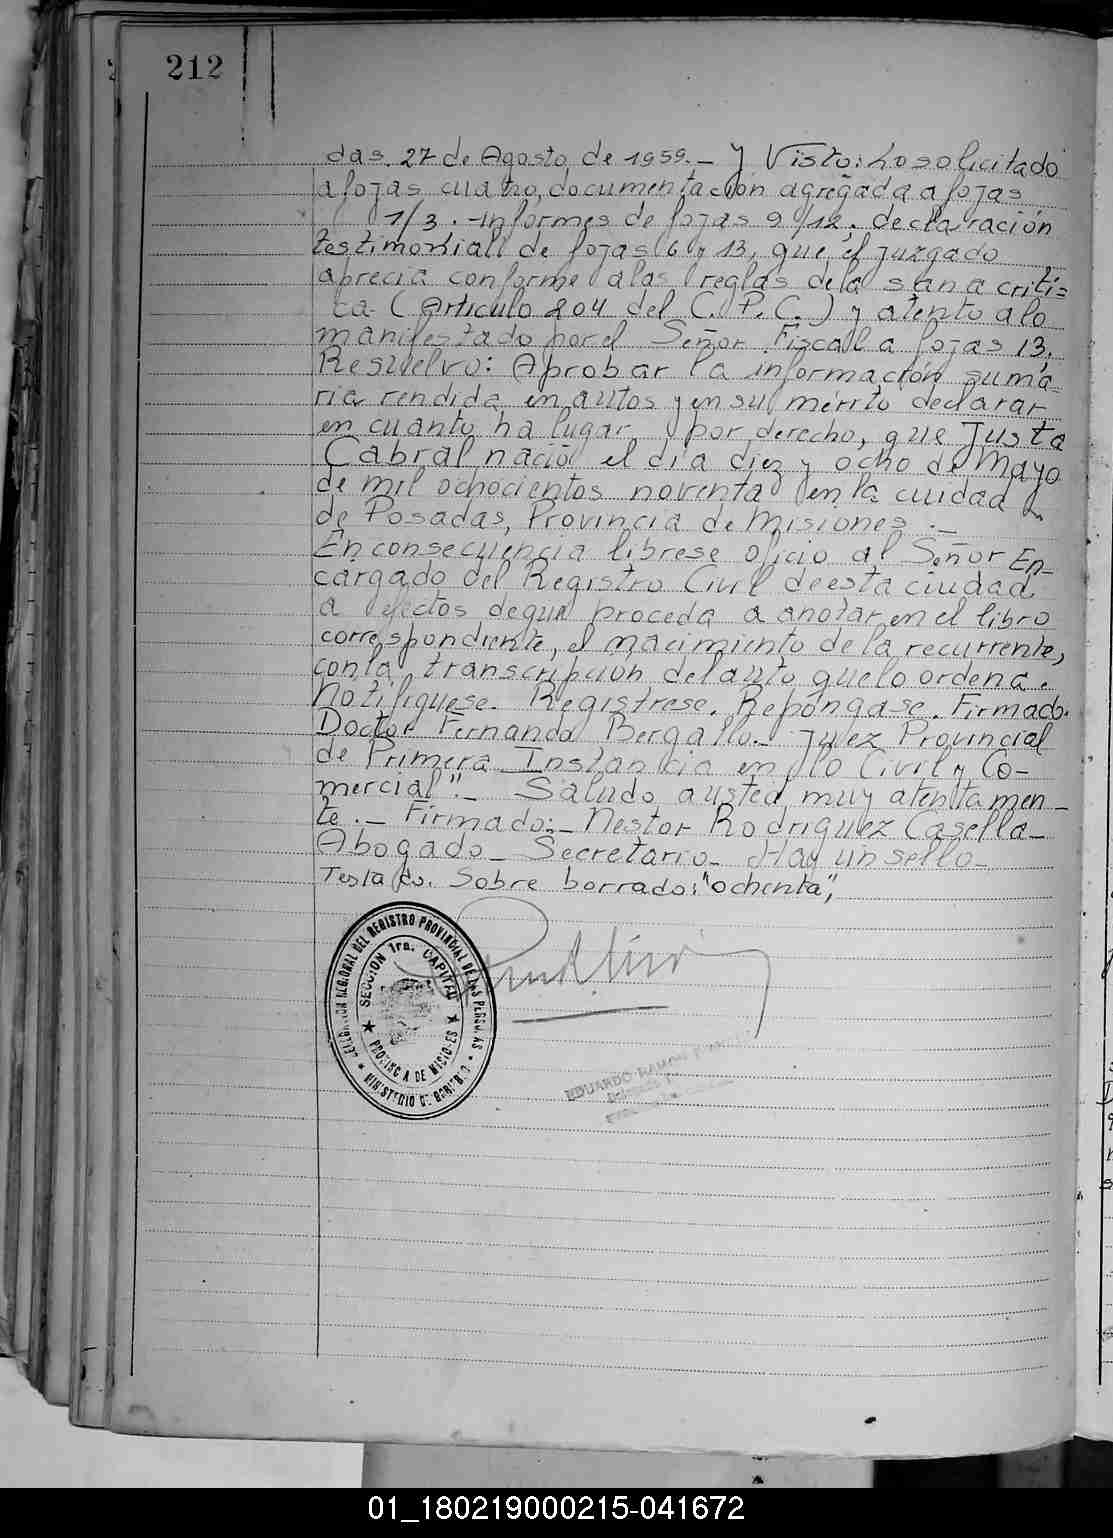 212
das. 27 de Agosto de 1959.- y Visto: Lo solicitado
a fojas cuatro, documentación agregada a fojas
1/3. -informes de fojas 9/12, declaración
testimoniall de fojas 6 y 13, que el juzgado
aprecia conforme a las reglas de la sana criti=
ca- (Articulo 204 del C. P. C.) y atento a lo
manifestado por el Señor Fiscal a fojas 13.
Resuelvo: Aprobar la información suma-
ria rendida en autos y en su mérito declarar
en cuanto ha lugar por derecho, que Justa
Cabral nació el día diez y ocho de Mayo
de mil ochocientos noventa en la cuidad
de Posadas, Provincia de Misiones.-
En consecuencia librese oficio al Señor En-
cargado del Registro Civil de esta ciudad
a efectos de que proceda a anotar en el libro
correspondiente, el nacimiento de la recurrente,
con la transcripción del auto que lo ordena.
Notifiquese. Registrese. Repóngase. Firmado.
Doctor Fernando Bergallo.- Juez Provincial
de Primera Instancia en lo Civil y Co-
mercial".- Saludo a usted muy atentamen-
te.- Firmado:- Nestor Rodriguez Casella-
Abogado- Secretario- Hay un sello-
Testado. Sobre borrado: "ochenta",
DELEGACION REGIONAL DEL REGISTRO PROVINCIAL DE LAS PERSONAS
SECCION 1ra. CAPITAL
PROVINCIA DE MISIONES
MINISTERIO DE GOBIERNO
EDUARDO RAMON
01_180219000215-041672